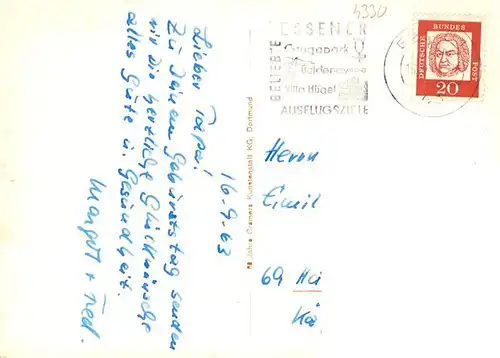 4330
BELIEBTE
ESSENER
Grugapark
Baldeneysee
Villa Hügel
AUSFLUGSZIELE
DEUTSCHE BUNDESPOST
20
16.9.63
Lieber Papa!
Zu Deinem Geburtstag senden
wir die herzliche Glückwünsche
alles Gute u. Gesundheit.
Margot + Fred.
Jahre Cramers Kunstanstalt KG, Dortmund
Herrn
Emil
69 Hei
Kä